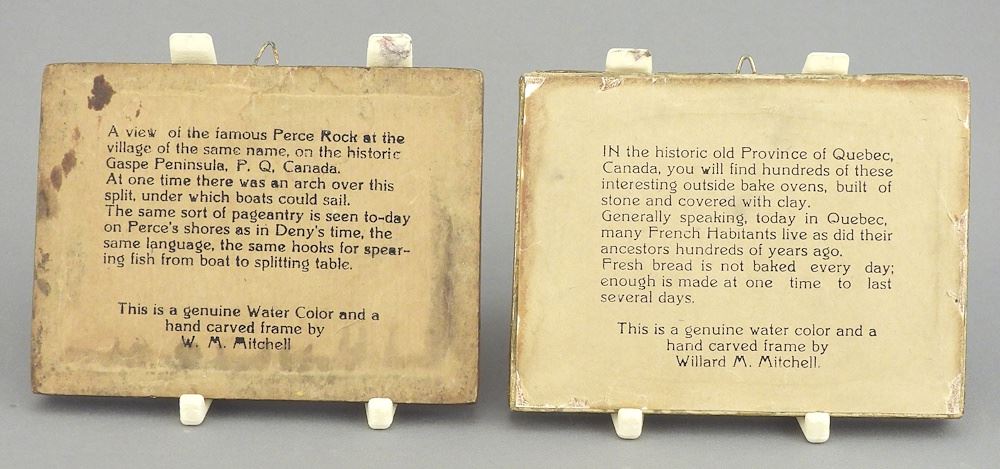 A view of the famous Perce Rock at the
village of the same name, on the historic
Gaspe Peninsula, P. Q, Canada.
At one time there was an arch over this
split, under which boats could sail.
The same sort of pageantry is seen to-day
on Perce's shores as in Deny's time, the
same language, the same hooks for spear-
ing fish from boat to splitting table.
This is a genuine Water Color and a
hand carved frame by
W. M. Mitchell
IN the historic old Province of Quebec,
Canada, you will find hundreds of these
interesting outside bake ovens, built of
stone and covered with clay.
Generally speaking, today in Quebec,
many French Habitants live as did their
ancestors hundreds of years ago.
Fresh bread is not baked every day;
enough is made at one time to last
several days.
This is a genuine water color and a
hand carved frame by
Willard M. Mitchell.